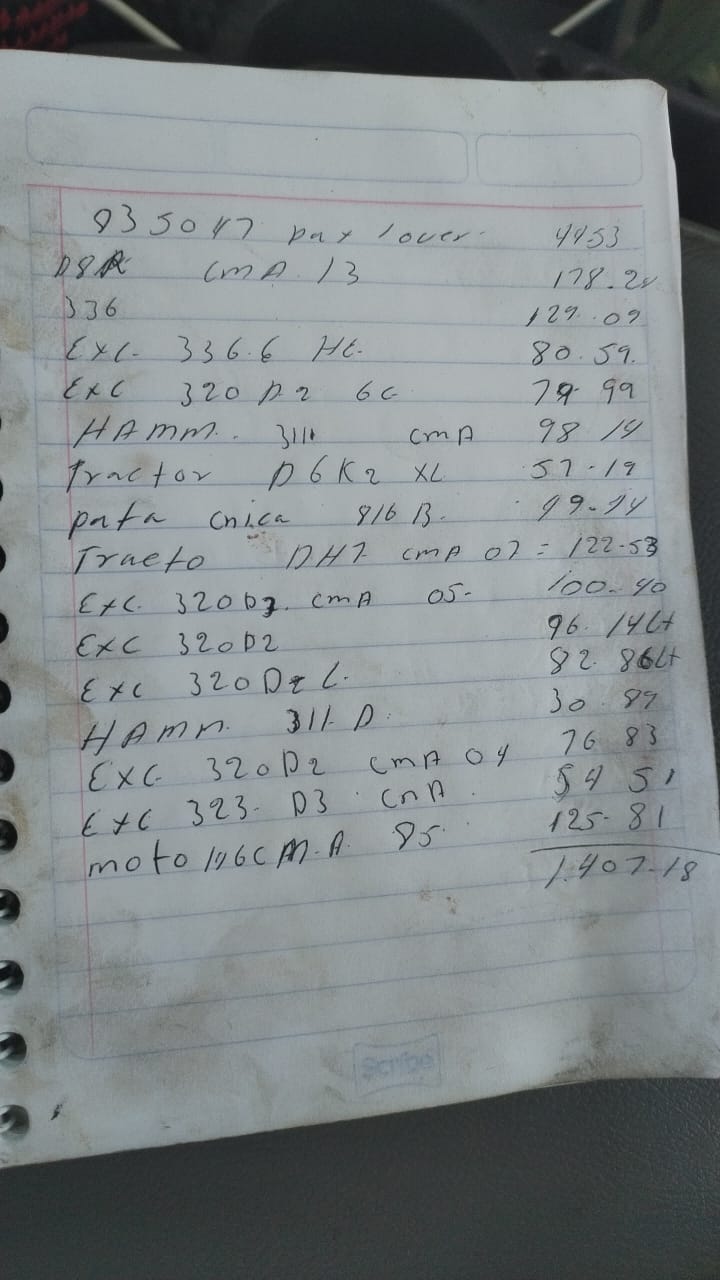 935047 pay lover. 44.53
D8R CMA.13 178.24
336 129.09
EXC. 336.6 HE. 80.59.
EXC 320 D.2 GC 79.99
HAMM. 3111 CMA 98 14
Tractor D6K2 XL 57.19
pata cnica 816 B. 99.94
Tracto DH7 CMA 07 = 122.53
EXC. 320D2. CMA 05- 100.40
EXC 320D2 96.14Lt
EXC 320D2 L. 82.86Lt
HAMM. 311. D. 30.89
EXC. 320D2 CMA 04 76 83
EXC 323. D3. CMA. 54 51
moto 146C M.A. 95. 125.81
1.407.18
Scribe